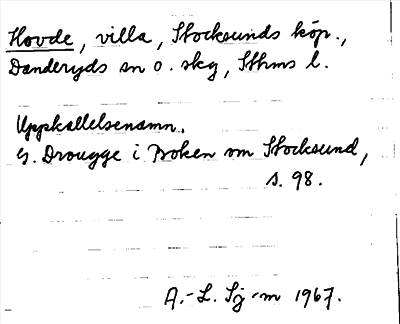 Hovde, villa, Stocksunds köp.,
Danderyds sn o. skg, Sthms l.
Uppkallelsenamn.
G. Drougge i Boken om Stocksund,
s. 98.
A.-L. Sj-m 1967.